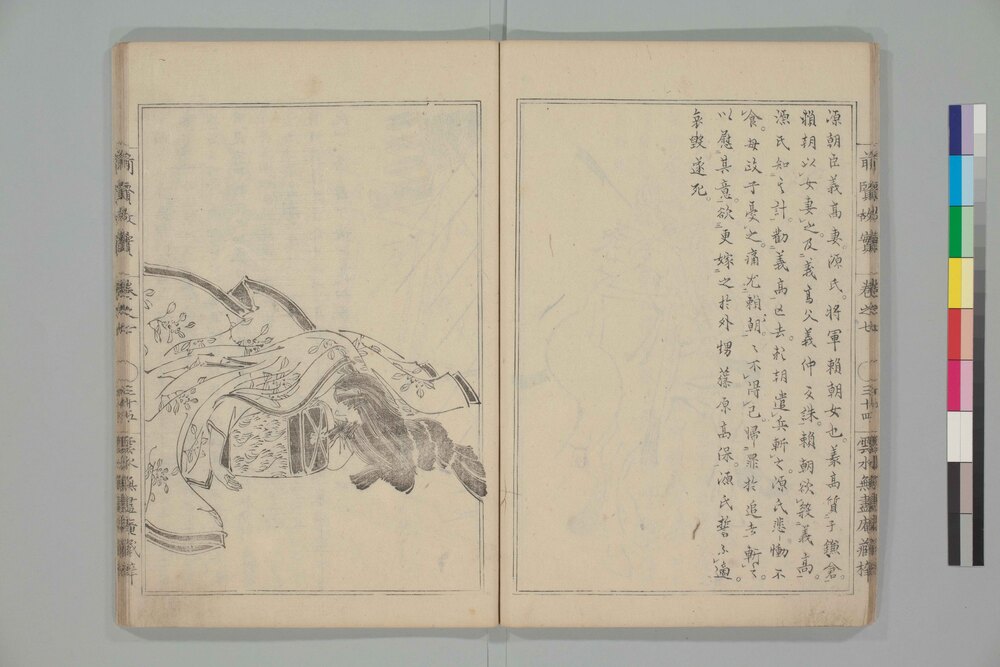 前賢故實 卷之七 三十四 雲水無盡庵藏梓
源朝臣義高妻源氏。將軍賴朝女也。義高質于鎌倉。
賴朝以女妻之及義高父義仲反誅賴朝欲殺義高
源氏知之計勸義高亡去。於朝遣兵斬之源氏悲慟不
食。母政子憂之。痛尤賴朝。〻不得已歸罪於追者斬之。
以慰其意。欲更嫁之於外甥藤原高保。源氏誓不適
哀毀遂死。
前賢故實 卷之七 雲水無盡庵藏梓